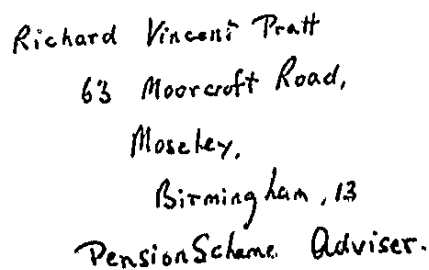 Richard Vincent Pratt
63 Moorcroft Road,
Moseley,
Birmingham, 13
Pension Scheme Adviser.